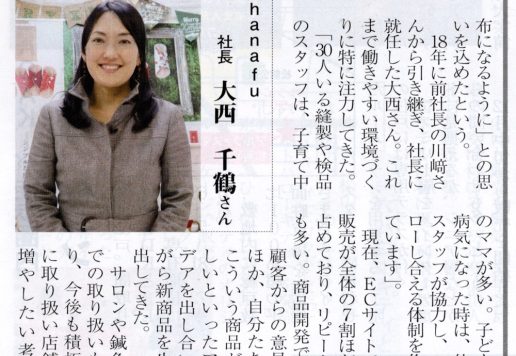 布になるように」との思
いを込めたという。
18年に前社長の川﨑さ
んから引き継ぎ、社長に
就任した大西さん。これ
まで働きやすい環境づく
りに特に注力してきた。
「30人いる縫製や検品
のスタッフは、子育て中
hanafu
社長 大西 千鶴さん
のママが多い。子ど
病気になった時は、
スタッフが協力し、
ローし合える体制を
ています」。
現在、ECサイト
販売が全体の7割ほ
占めており、リピー
も多い。商品開発で
顧客からの意見
ほか、自分た
こういう商品が
しいといったア
デアを出し合い
がら新商品を生
出してきた。
サロンや鍼灸
での取り扱いも
り、今後も積極
に取り扱い店舗
増やしたい考